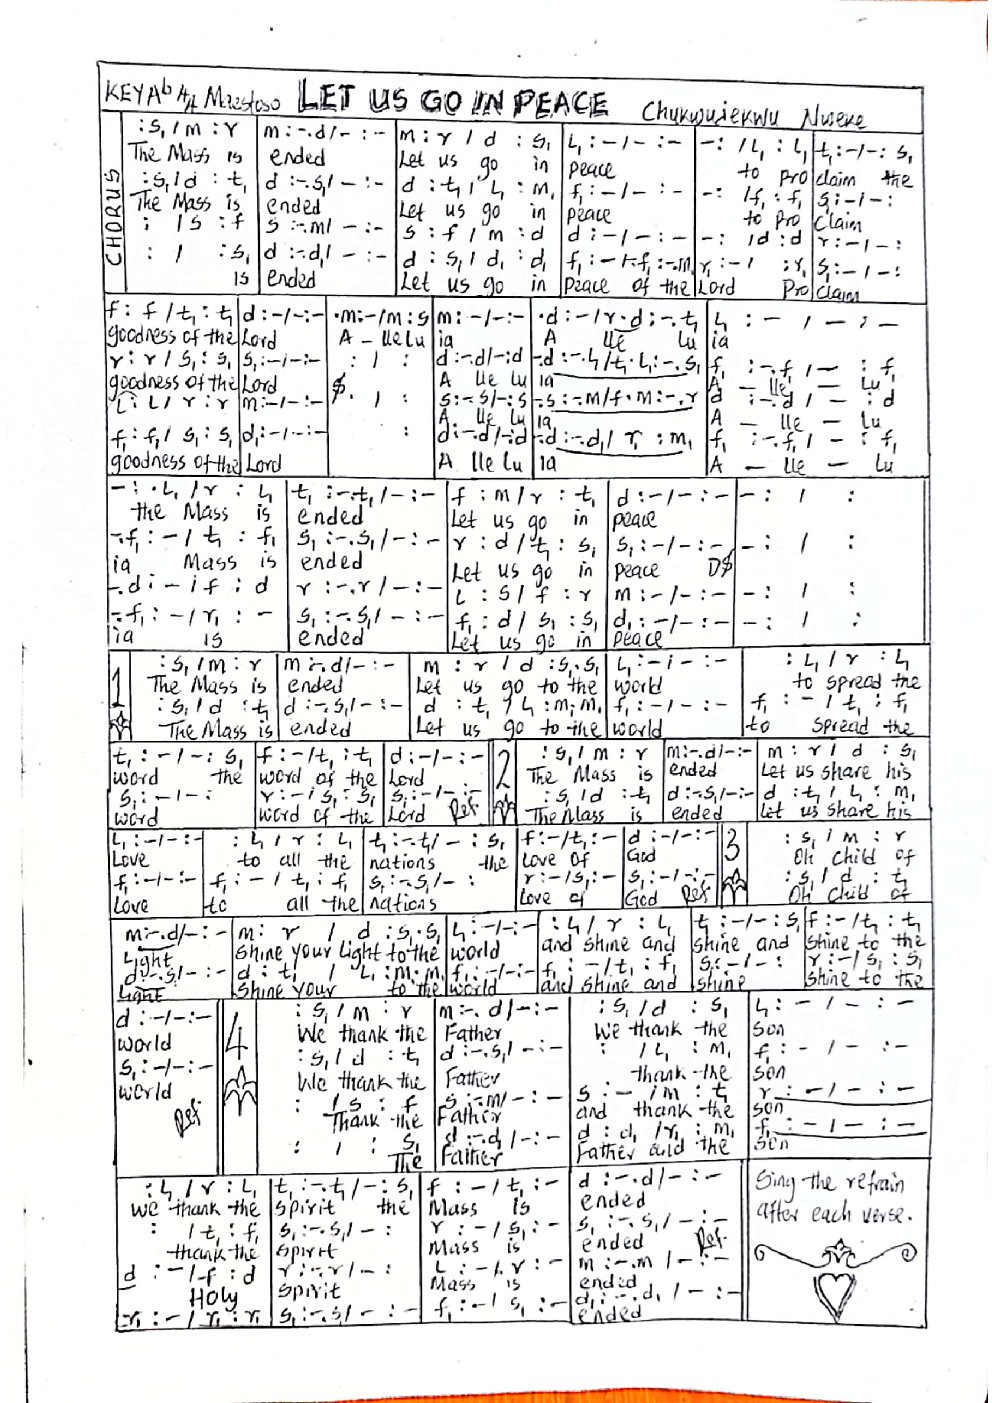 KEY Ab 4/4 Maestoso LET US GO IN PEACE Chukwujekwu Nweke
CHORUS
: s₁ / m : r | m : -.d / - : - | m : r / d : s₁ | l₁ : - / - : - | - : / l₁ : l₁ | t₁ : - / - : s₁
The Mass is | ended | Let us go in | peace | to pro | claim the
: s₁ / d : t₁ | d : -.s₁ / - : - | d : t₁ / l₁ : m₁ | f₁ : - / - : - | - : / f₁ : f₁ | s₁ : - / - :
The Mass is | ended | Let us go in | peace | to pro | claim
: / s : f | s : -.m / - : - | s : f / m : d | d : - / - : - | - : / d : d | r : - / - :
: / : s₁ | d : -.d₁ / - : - | d : s₁ / d₁ : d₁ | f₁ : - / -.f₁ : -.m₁ | r₁ : - / : r₁ | s₁ : - / - :
is | ended | Let us go in | peace of the | Lord Pro | claim
f : f / t₁ : t₁ | d : - / - : - | .m : - / m : s | m : - / - : - | .d : - / r . d : - . t₁ | l₁ : - / - : -
goodness of the | Lord | A - lle lu | ia | A lle lu | ia
r : r / s₁ : s₁ | s₁ : - / - : - | : / : | d : -.d / - : d | -.d : -.l₁ / t₁ . l₁ : -.s₁ | f₁ : -.f₁ / - : f₁
goodness of the | Lord | $. | A lle lu | ia | A - lle - lu
l₁ : l₁ / r : r | m : - / - : - | : / : | s : -.s / - : s | -.s : -.m / f . m : -.r | d : -.d / - : d
A lle lu | ia | A - lle - lu
f₁ : f₁ / s₁ : s₁ | d₁ : - / - : - | : | d : -.d / - : d | -.d : -.d₁ / r₁ : m₁ | f₁ : -.f₁ / - : f₁
goodness of the | Lord | A lle lu | ia | A - lle - lu
- : .l₁ / r : l₁ | t₁ : -.t₁ / - : - | f : m / r : t₁ | d : - / - : - | - : / :
the Mass is | ended | Let us go in | peace
-.f₁ : - / t₁ : f₁ | s₁ : -.s₁ / - : - | r : d / t₁ : s₁ | s₁ : - / - : - | - : / :
ia Mass is | ended | Let us go in | peace D$
-.d : - / f : d | r : -.r / - : - | l : s / f : r | m : - / - : - | - : / :
-.f₁ : - / r₁ : - | s₁ : -.s₁ / - : - | f₁ : d / s₁ : s₁ | d₁ : - / - : - | - : / :
ia is | ended | Let us go in | peace
1 : s₁ / m : r | m : -.d / - : - | m : r / d : s₁.s₁ | l₁ : - / - : - | : l₁ / r : l₁
The Mass is | ended | Let us go to the | world | to spread the
: s₁ / d : t₁ | d : -.s₁ / - : - | d : t₁ / l₁ : m₁.m₁ | f₁ : - / - : - | f₁ : - / t₁ : f₁
The Mass is | ended | Let us go to the | world | to spread the
t₁ : - / - : s₁ | f : - / t₁ : t₁ | d : - / - : - | 2 : s₁ / m : r | m : -.d / - : - | m : r / d : s₁
word the | word of the | Lord | The Mass is | ended | Let us share his
s₁ : - / - : | r : - / s₁ : s₁ | s₁ : - / - : - | : s₁ / d : t₁ | d : -.s₁ / - : - | d : t₁ / l₁ : m₁
word | word of the | Lord Ref | The Mass is | ended | Let us share his
l₁ : - / - : - | : l₁ / r : l₁ | t₁ : -.t₁ / - : s₁ | f : - / t₁ : - | d : - / - : - | 3 : s₁ / m : r
Love | to all the | nations the | love of | God | Oh child of
f₁ : - / - : - | f₁ : - / t₁ : f₁ | s₁ : -.s₁ / - : | r : - / s₁ : - | s₁ : - / - : - | : s₁ / d : t₁
Love | to all the | nations | Love of | God Ref | Oh child of
m : -.d / - : - | m : r / d : s₁.s₁ | l₁ : - / - : - | : l₁ / r : l₁ | t₁ : - / - : s₁ | f : - / t₁ : t₁
Light | shine your light to the | world | and shine and | shine and | shine to the
d : -.s₁ / - : - | d : t₁ / l₁ : m₁.m₁ | f₁ : - / - : - | f₁ : - / t₁ : f₁ | s₁ : - / - : | r : - / s₁ : s₁
Light | shine your to the | world | and shine and | shine | shine to the
d : - / - : - | 4 : s₁ / m : r | m : -. d / - : - | : s₁ / d : s₁ | l₁ : - / - : -
world | We thank the | Father | We thank the | son
s₁ : - / - : - | : s₁ / d : t₁ | d : -.s₁ / - : - | : / l₁ : m₁ | f₁ : - / - : -
world | We thank the | Father | thank the | son
Ref | : / s : f | s : -.m / - : - | s : - / m : t₁ | r : - / - : -
Thank the | Father | and thank the | son
: / : s₁ | d : -.d₁ / - : - | d : d₁ / r₁ : m₁ | f₁ : - / - : -
The | Father | Father and the | son
: l₁ / r : l₁ | t₁ : -.t₁ / - : s₁ | f : - / t₁ : - | d : -.d / - : -
we thank the | spirit the | Mass is | ended
: / t₁ : f₁ | s₁ : -.s₁ / - : | r : - / s₁ : - | s₁ : -.s₁ / - : -
thank the | spirit | Mass is | ended Ref
d : - / f : d | r : -.r / - : | l : - / r : - | m : -.m / - : -
Holy | spirit | Mass is | ended
r₁ : - / r₁ : r₁ | s₁ : -.s₁ / - : - | f₁ : - / s₁ : - | d₁ : -.d₁ / - : -
ended
Sing the refrain
after each verse.